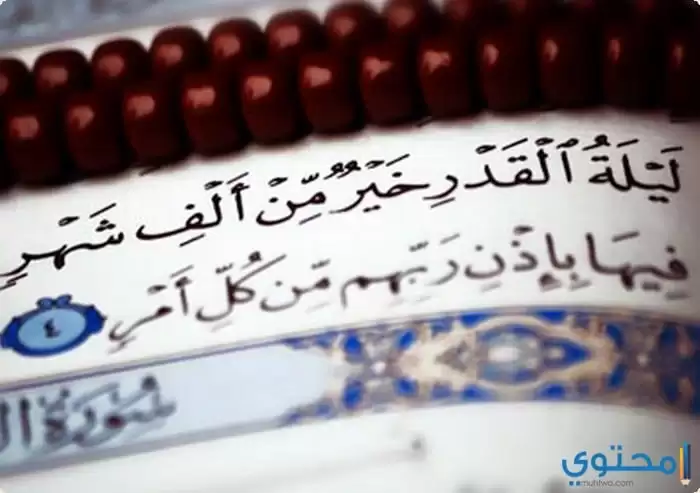 لَيۡلَةُ ٱلۡقَدۡرِ خَيۡرٌ مِّنۡ أَلۡفِ شَهۡرٍ
فِيهَا بِإِذۡنِ رَبِّهِم مِّن كُلِّ أَمۡرٍ ٤
سُورَةُ
محتوي
muhtwa.com